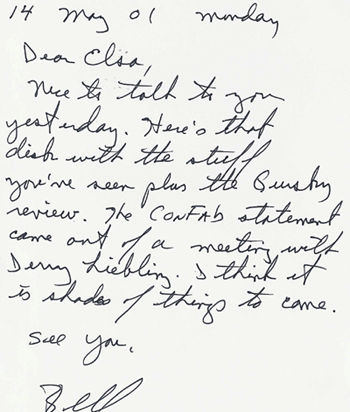 14 May 01 Monday
Dear Elsa,
Nice to talk to you
yesterday. Here's that
disk with the stuff
you've seen plus the
review. The CONFAB statement
came out of a meeting with
Liebling. I think it
is shades of things to come.
See you,
Bill